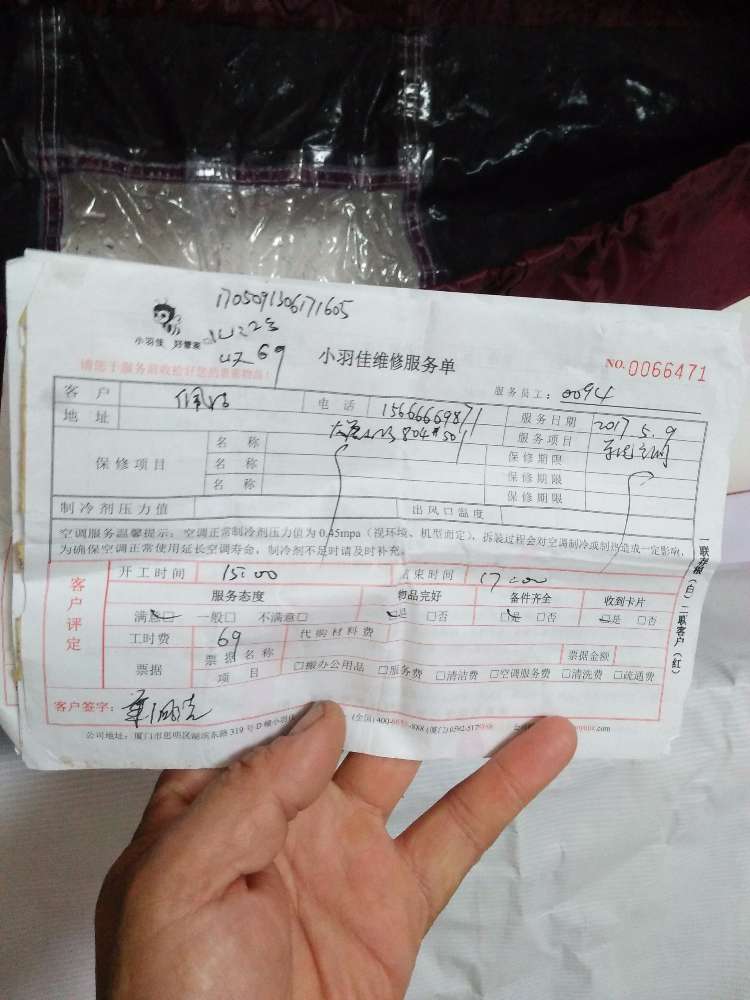 170509130617​1605
69
小羽佳 好管家
小羽佳维修服务单
NO.0066471
请您于服务前收拾好您的贵重物品！
服务员工：0094
客户 电话 15666669871 服务日期 2017.5.9
地址 804#501 服务项目
保修项目 名称 保修期限
名称 保修期限
名称 保修期限
制冷剂压力值 出风口温度
空调服务温馨提示：空调正常制冷剂压力值为0.45mpa（视环境、机型而定），拆装过程会对空调制冷或制热造成一定影响，
为确保空调正常使用延长空调寿命，制冷剂不足时请及时补充。
客户评定
开工时间 15:00 结束时间 17:00
服务态度 物品完好 备件齐全 收到卡片
满意□ 一般□ 不满意□ □是 □否 □是 □否 □是 □否
工时费 69 代购材料费
票据 票据名称 票据金额
项目 □搬办公用品 □服务费 □清洁费 □空调服务费 □清洗费 □疏通费
客户签字：
公司地址：厦门市思明区湖滨东路319号D幢小羽佳
一联存根（白）二联客户（红）